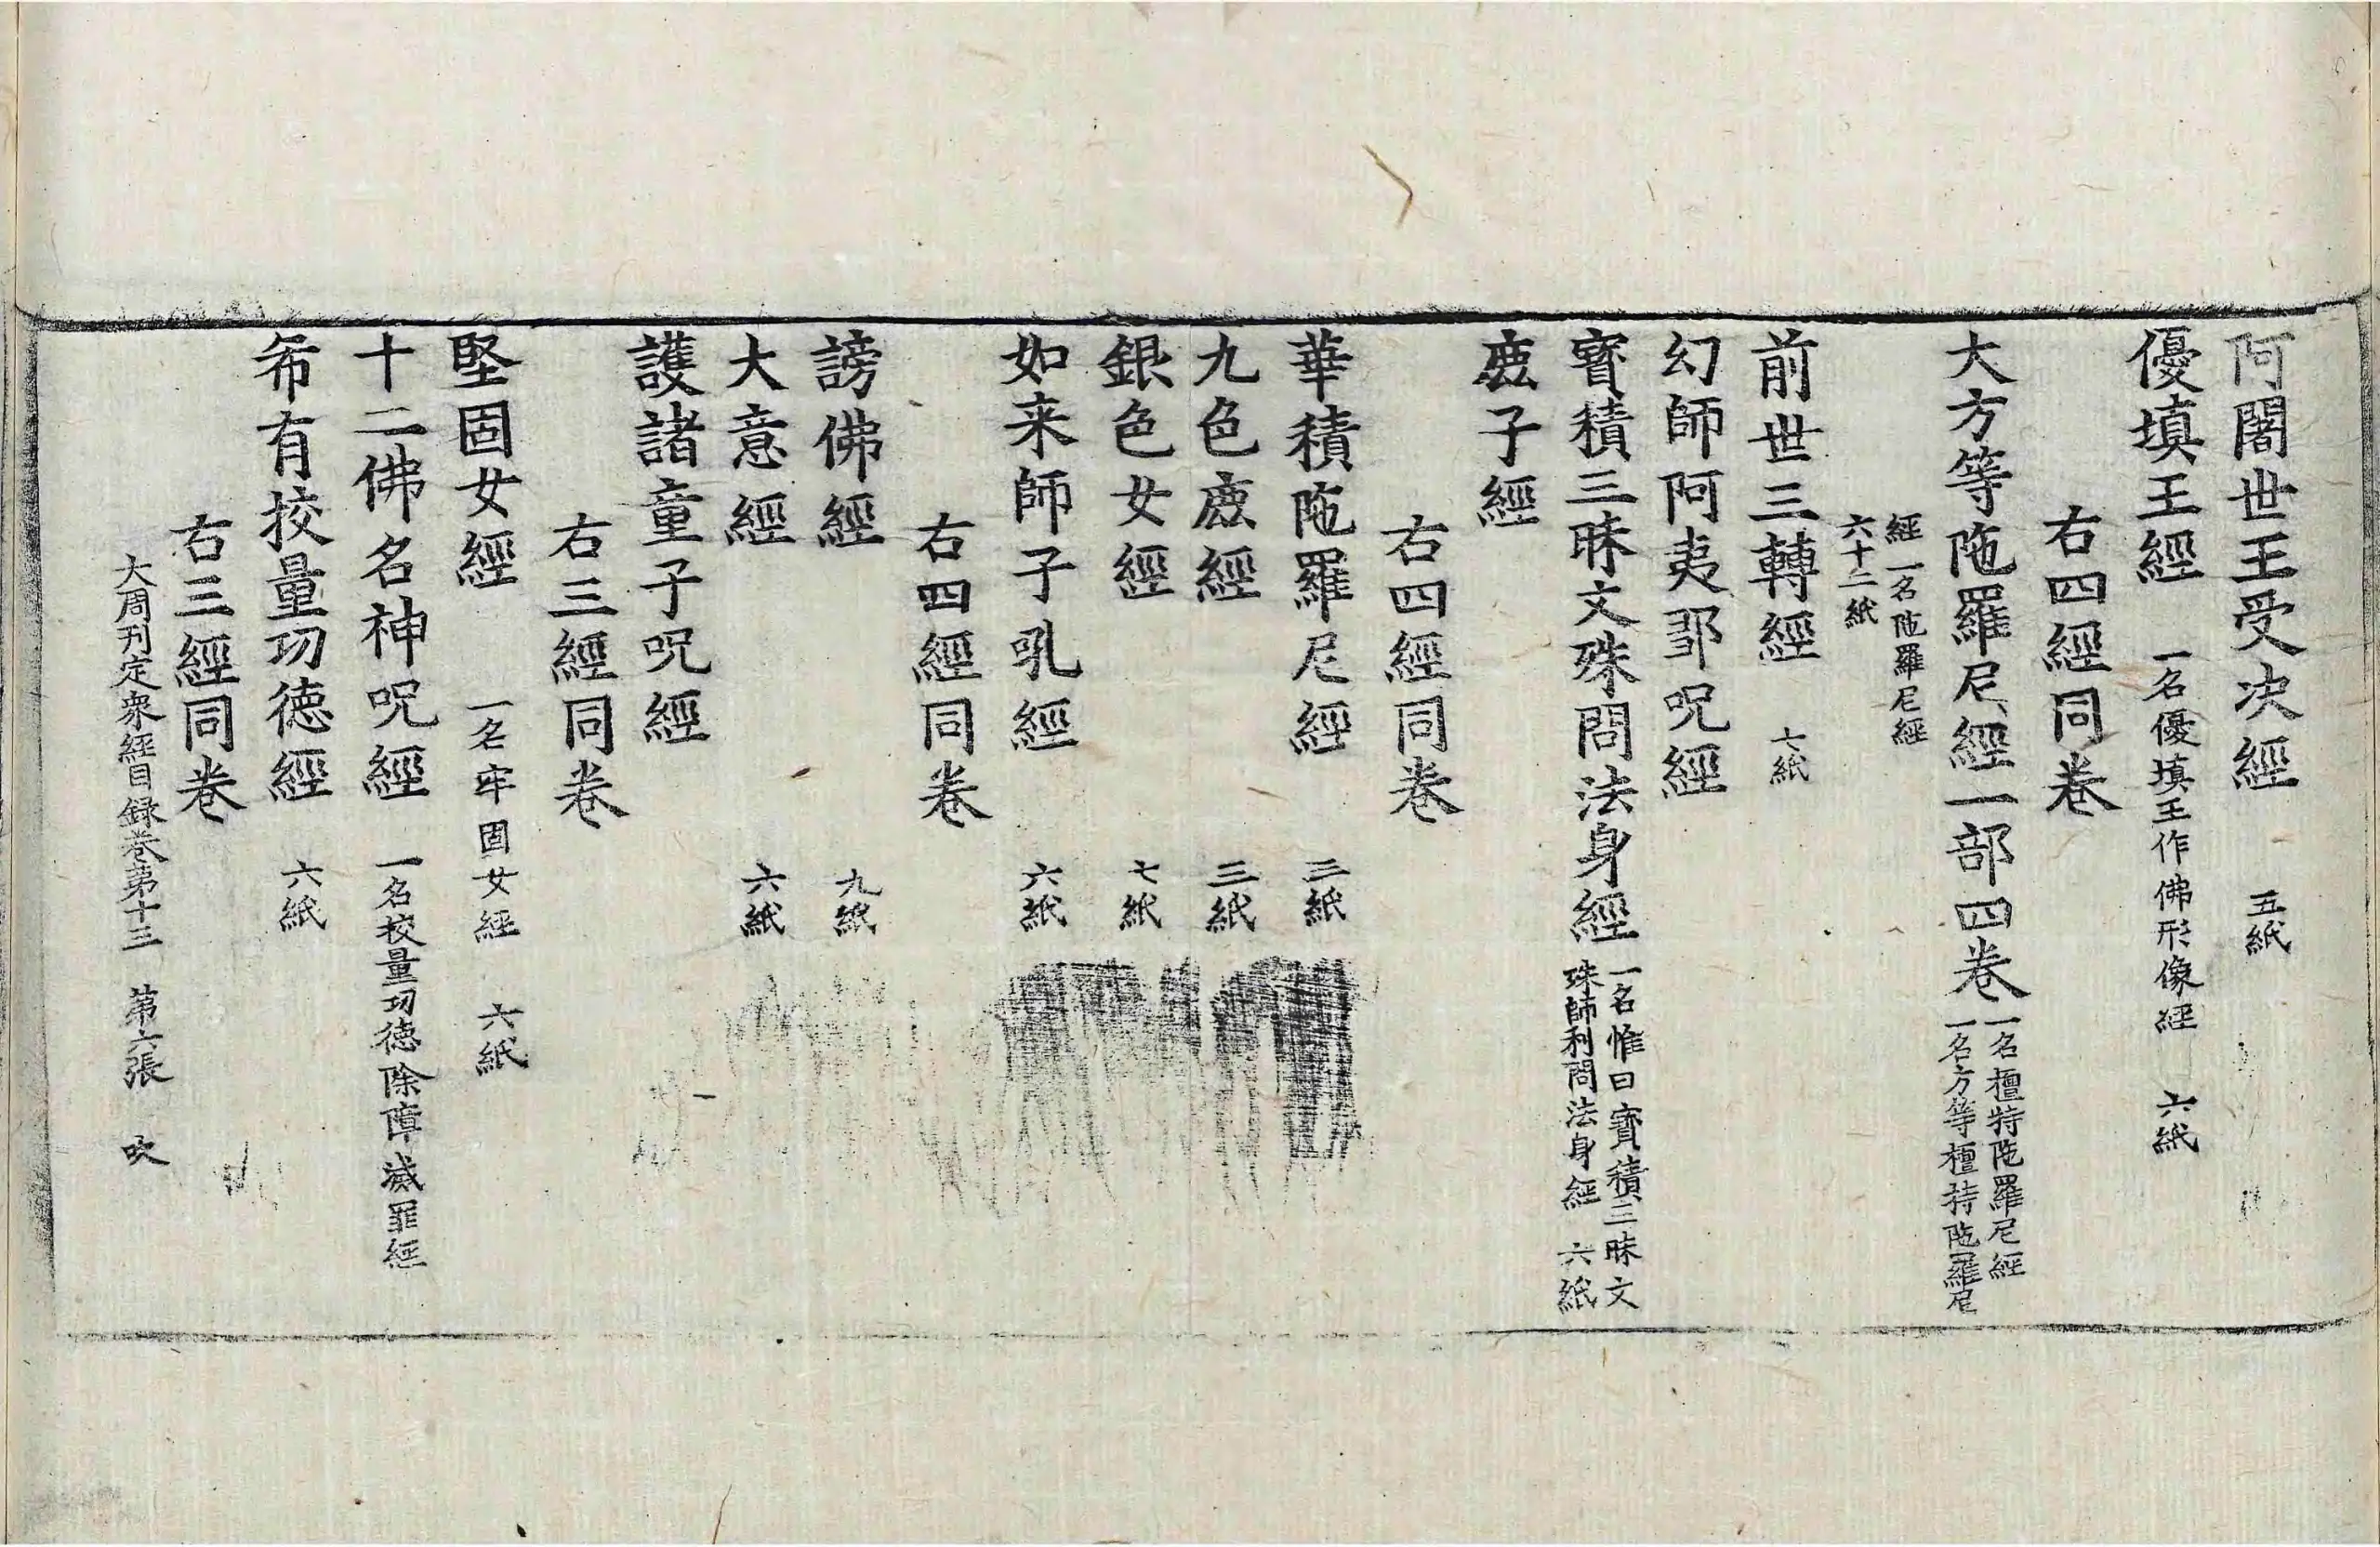 阿闍世王受决經　五紙
優填王經　一名優填王作佛形像經　六紙
右四經同卷
大方等陁羅尼經一部四卷　一名檀特陁羅尼經
一名方等檀持陁羅尼
經　一名陁羅尼經
六十二紙
前世三轉經　七紙
幻師阿夷鄒呪經
寳積三昧文殊問法身經　一名惟曰寳積三昧文
殊師利問法身經　六紙
鹿子經
右四經同卷
華積陁羅尼經　三紙
九色鹿經　三紙
銀色女經　七紙
如来師子吼經　六紙
右四經同卷
謗佛經　九紙
大意經　六紙
護諸童子呪經
右三經同卷
堅固女經　一名牢固女經　六紙
十二佛名神呪經　一名挍量功德除障滅罪經
希有挍量功德經　六紙
右三經同卷
大周刊定衆經目録卷第十三　第六張　吹